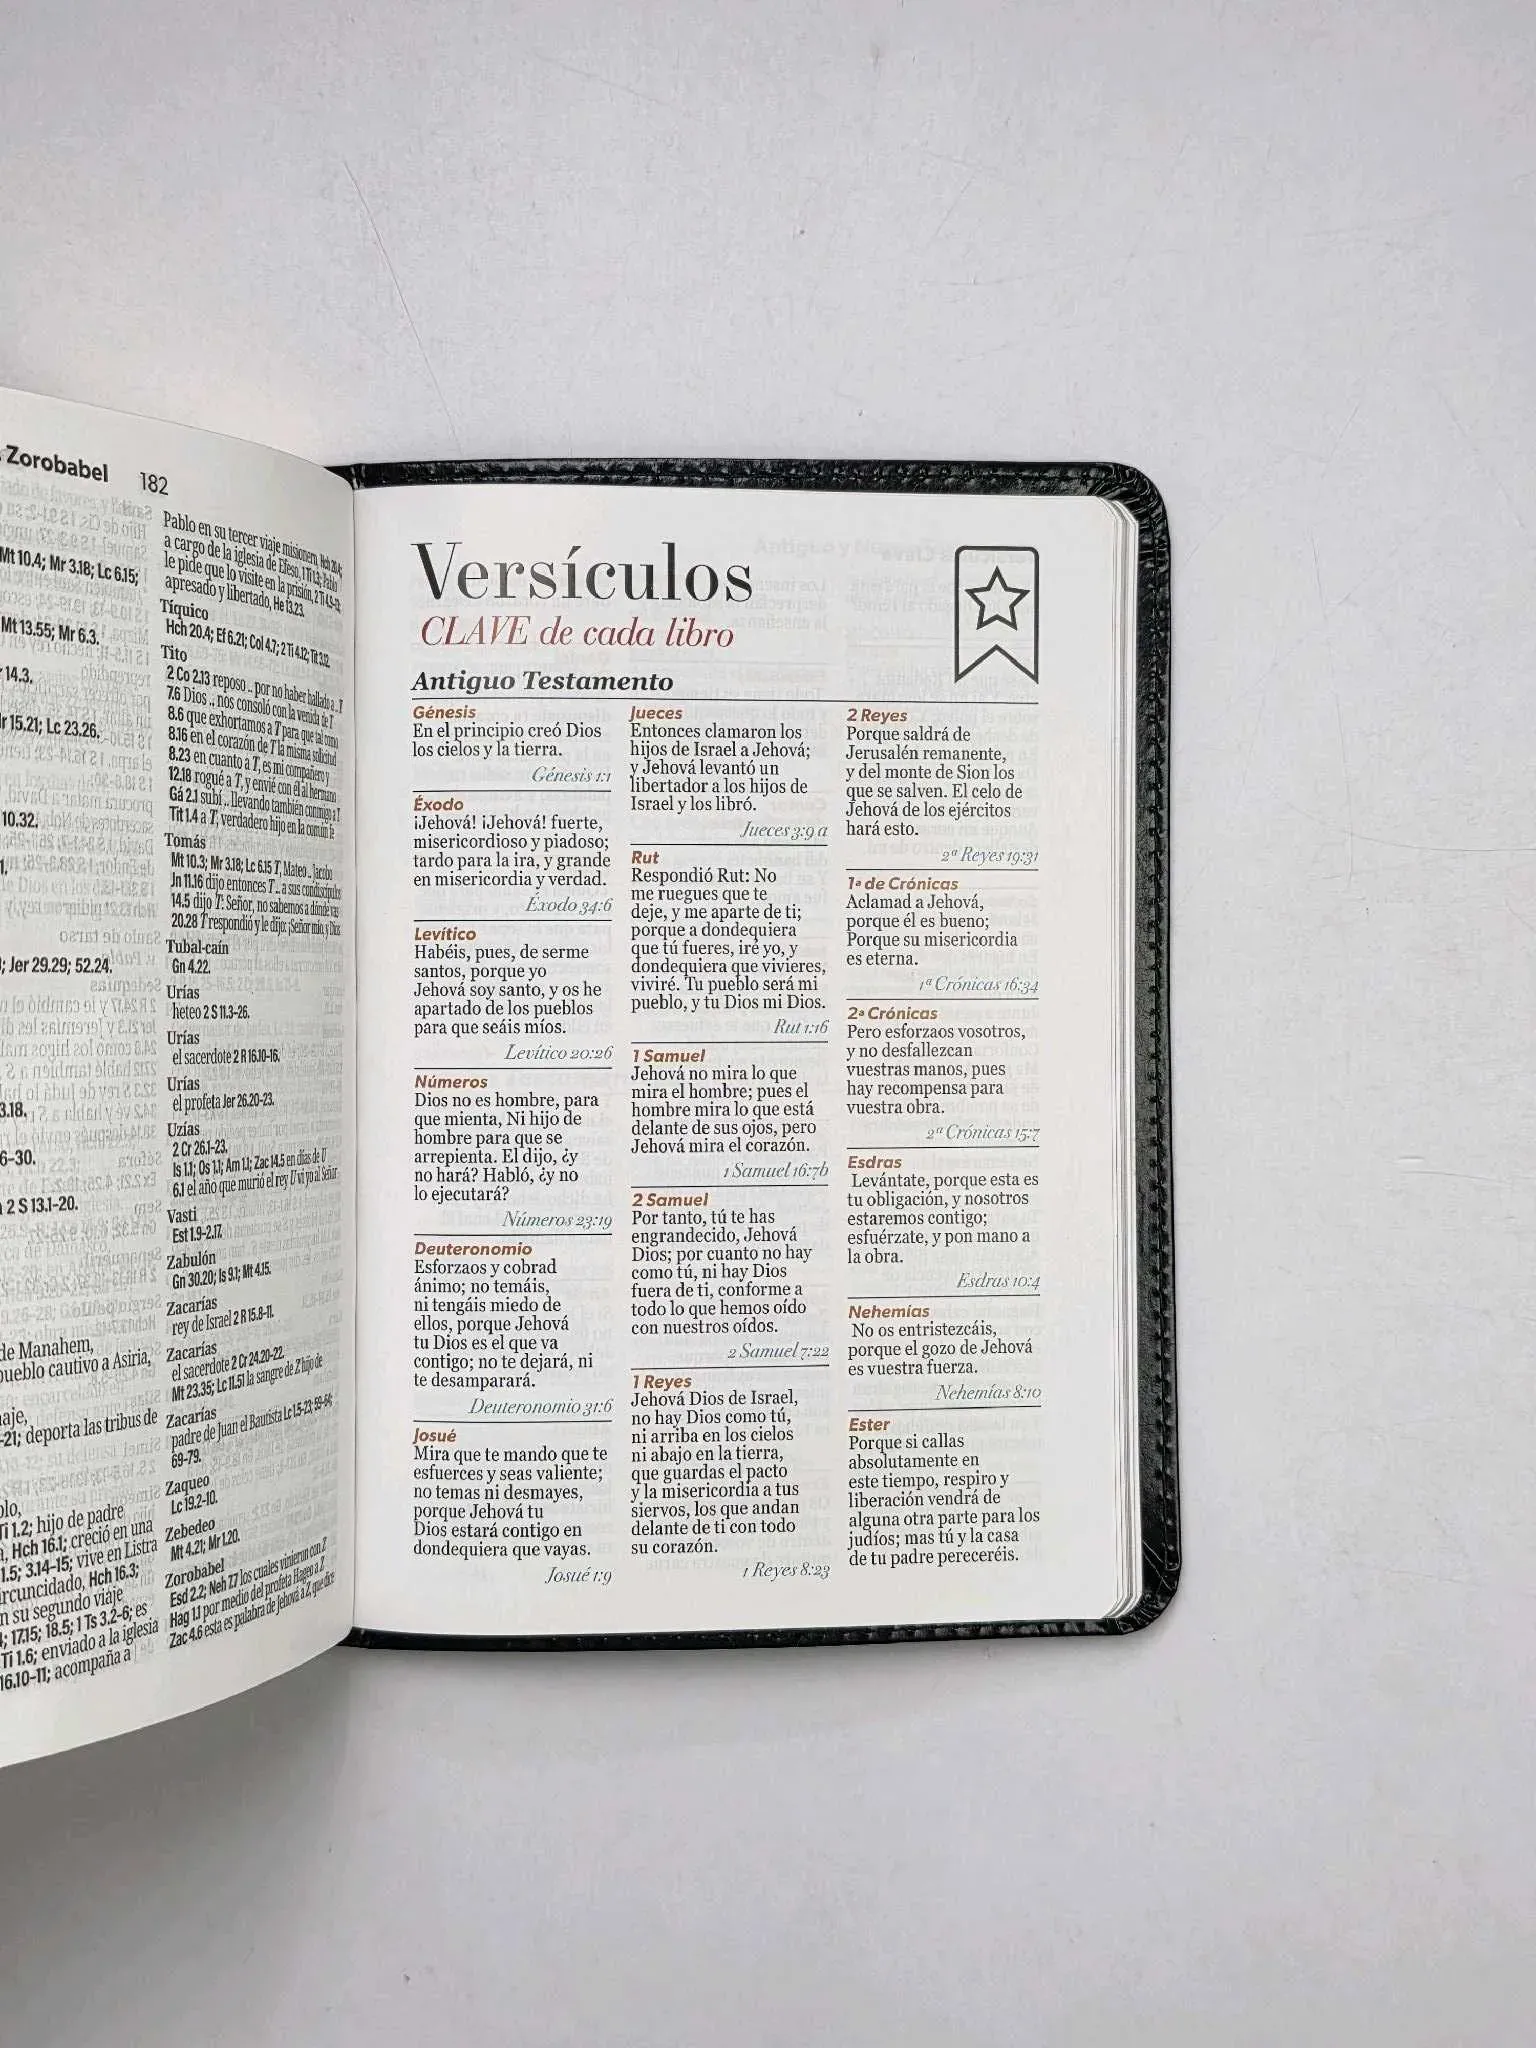 Zorobabel 182
Mt 10.4; Mr 3.18; Lc 6.15;
Mt 13.55; Mr 6.3.
14.3.
15.21; Lc 23.26.
10.32.
Jer 29.29; 52.24.
3.18.
6-30.
2 S 13.1-20.
de Manahem,
pueblo cautivo a Asiria,
-21; deporta las tribus de
Ti 1.2; hijo de padre
Hch 16.1; creció en una
1.5; 3.14-15; vive en Listra
Hch 16.3;
n su segundo viaje
17.15; 18.5; 1 Ts 3.2-6; es
Ti 1.6; enviado a la iglesia
16.10-11; acompaña a
Pablo en su tercer viaje misionero, Hch 20.4;
a cargo de la iglesia de Efeso, 1 Ti 1.3; Pablo
le pide que lo visite en la prisión, 2 Ti 4.9-13;
apresado y libertado, He 13.23.
Tíquico
Hch 20.4; Ef 6.21; Col 4.7; 2 Ti 4.12; Tit 3.12.
Tito
2 Co 2.13 reposo .. por no haber hallado a .. T
7.6 Dios .. nos consoló con la venida de T
8.6 que exhortamos a T para que tal como
8.16 en el corazón de T la misma solicitud
8.23 en cuanto a T, es mi compañero y
12.18 rogué a T, y envié con él al hermano
Gá 2.1 subí .. llevando también conmigo a T
Tit 1.4 a T, verdadero hijo en la común fe
Tomás
Mt 10.3; Mr 3.18; Lc 6.15 T, Mateo .. Jacobo
Jn 11.16 dijo entonces T .. a sus condiscípulos
14.5 dijo T: Señor, no sabemos a dónde vas
20.28 T respondió y le dijo: ¡Señor mío, y Dios
Tubal-caín
Gn 4.22.
Urías
heteo 2 S 11.3-26.
Urías
el sacerdote 2 R 16.10-16.
Urías
el profeta Jer 26.20-23.
Uzías
2 Cr 26.1-23.
Is 1.1; Os 1.1; Am 1.1; Zac 14.5 en días de U
6.1 el año que murió el rey U vi yo al Señor
Vasti
Est 1.9-2.17.
Zabulón
Gn 30.20; Is 9.1; Mt 4.15.
Zacarías
rey de Israel 2 R 15.8-11.
Zacarías
el sacerdote 2 Cr 24.20-22.
Mt 23.35; Lc 11.51 la sangre de Z hijo de
Zacarías
padre de Juan el Bautista Lc 1.5-23; 59-64;
69-79.
Zaqueo
Lc 19.2-10.
Zebedeo
Mt 4.21; Mr 1.20.
Zorobabel
Esd 2.2; Neh 7.7 los cuales vinieron con Z
Hag 1.1 por medio del profeta Hageo a Z
Zac 4.6 esta es palabra de Jehová a Z, que dice
Versículos
CLAVE de cada libro
Antiguo Testamento
Génesis
En el principio creó Dios
los cielos y la tierra.
Génesis 1:1
Éxodo
¡Jehová! ¡Jehová! fuerte,
misericordioso y piadoso;
tardo para la ira, y grande
en misericordia y verdad.
Éxodo 34:6
Levítico
Habéis, pues, de serme
santos, porque yo
Jehová soy santo, y os he
apartado de los pueblos
para que seáis míos.
Levítico 20:26
Números
Dios no es hombre, para
que mienta, Ni hijo de
hombre para que se
arrepienta. El dijo, ¿y
no hará? Habló, ¿y no
lo ejecutará?
Números 23:19
Deuteronomio
Esforzaos y cobrad
ánimo; no temáis,
ni tengáis miedo de
ellos, porque Jehová
tu Dios es el que va
contigo; no te dejará, ni
te desamparará.
Deuteronomio 31:6
Josué
Mira que te mando que te
esfuerces y seas valiente;
no temas ni desmayes,
porque Jehová tu
Dios estará contigo en
dondequiera que vayas.
Josué 1:9
Jueces
Entonces clamaron los
hijos de Israel a Jehová;
y Jehová levantó un
libertador a los hijos de
Israel y los libró.
Jueces 3:9 a
Rut
Respondió Rut: No
me ruegues que te
deje, y me aparte de ti;
porque a dondequiera
que tú fueres, iré yo, y
dondequiera que vivieres,
viviré. Tu pueblo será mi
pueblo, y tu Dios mi Dios.
Rut 1:16
1 Samuel
Jehová no mira lo que
mira el hombre; pues el
hombre mira lo que está
delante de sus ojos, pero
Jehová mira el corazón.
1 Samuel 16:7b
2 Samuel
Por tanto, tú te has
engrandecido, Jehová
Dios; por cuanto no hay
como tú, ni hay Dios
fuera de ti, conforme a
todo lo que hemos oído
con nuestros oídos.
2 Samuel 7:22
1 Reyes
Jehová Dios de Israel,
no hay Dios como tú,
ni arriba en los cielos
ni abajo en la tierra,
que guardas el pacto
y la misericordia a tus
siervos, los que andan
delante de ti con todo
su corazón.
1 Reyes 8:23
2 Reyes
Porque saldrá de
Jerusalén remanente,
y del monte de Sion los
que se salven. El celo de
Jehová de los ejércitos
hará esto.
2ª Reyes 19:31
1ª de Crónicas
Aclamad a Jehová,
porque él es bueno;
Porque su misericordia
es eterna.
1ª Crónicas 16:34
2ª Crónicas
Pero esforzaos vosotros,
y no desfallezcan
vuestras manos, pues
hay recompensa para
vuestra obra.
2ª Crónicas 15:7
Esdras
Levántate, porque esta es
tu obligación, y nosotros
estaremos contigo;
esfuérzate, y pon mano a
la obra.
Esdras 10:4
Nehemías
No os entristezcáis,
porque el gozo de Jehová
es vuestra fuerza.
Nehemías 8:10
Ester
Porque si callas
absolutamente en
este tiempo, respiro y
liberación vendrá de
alguna otra parte para los
judíos; mas tú y la casa
de tu padre pereceréis.